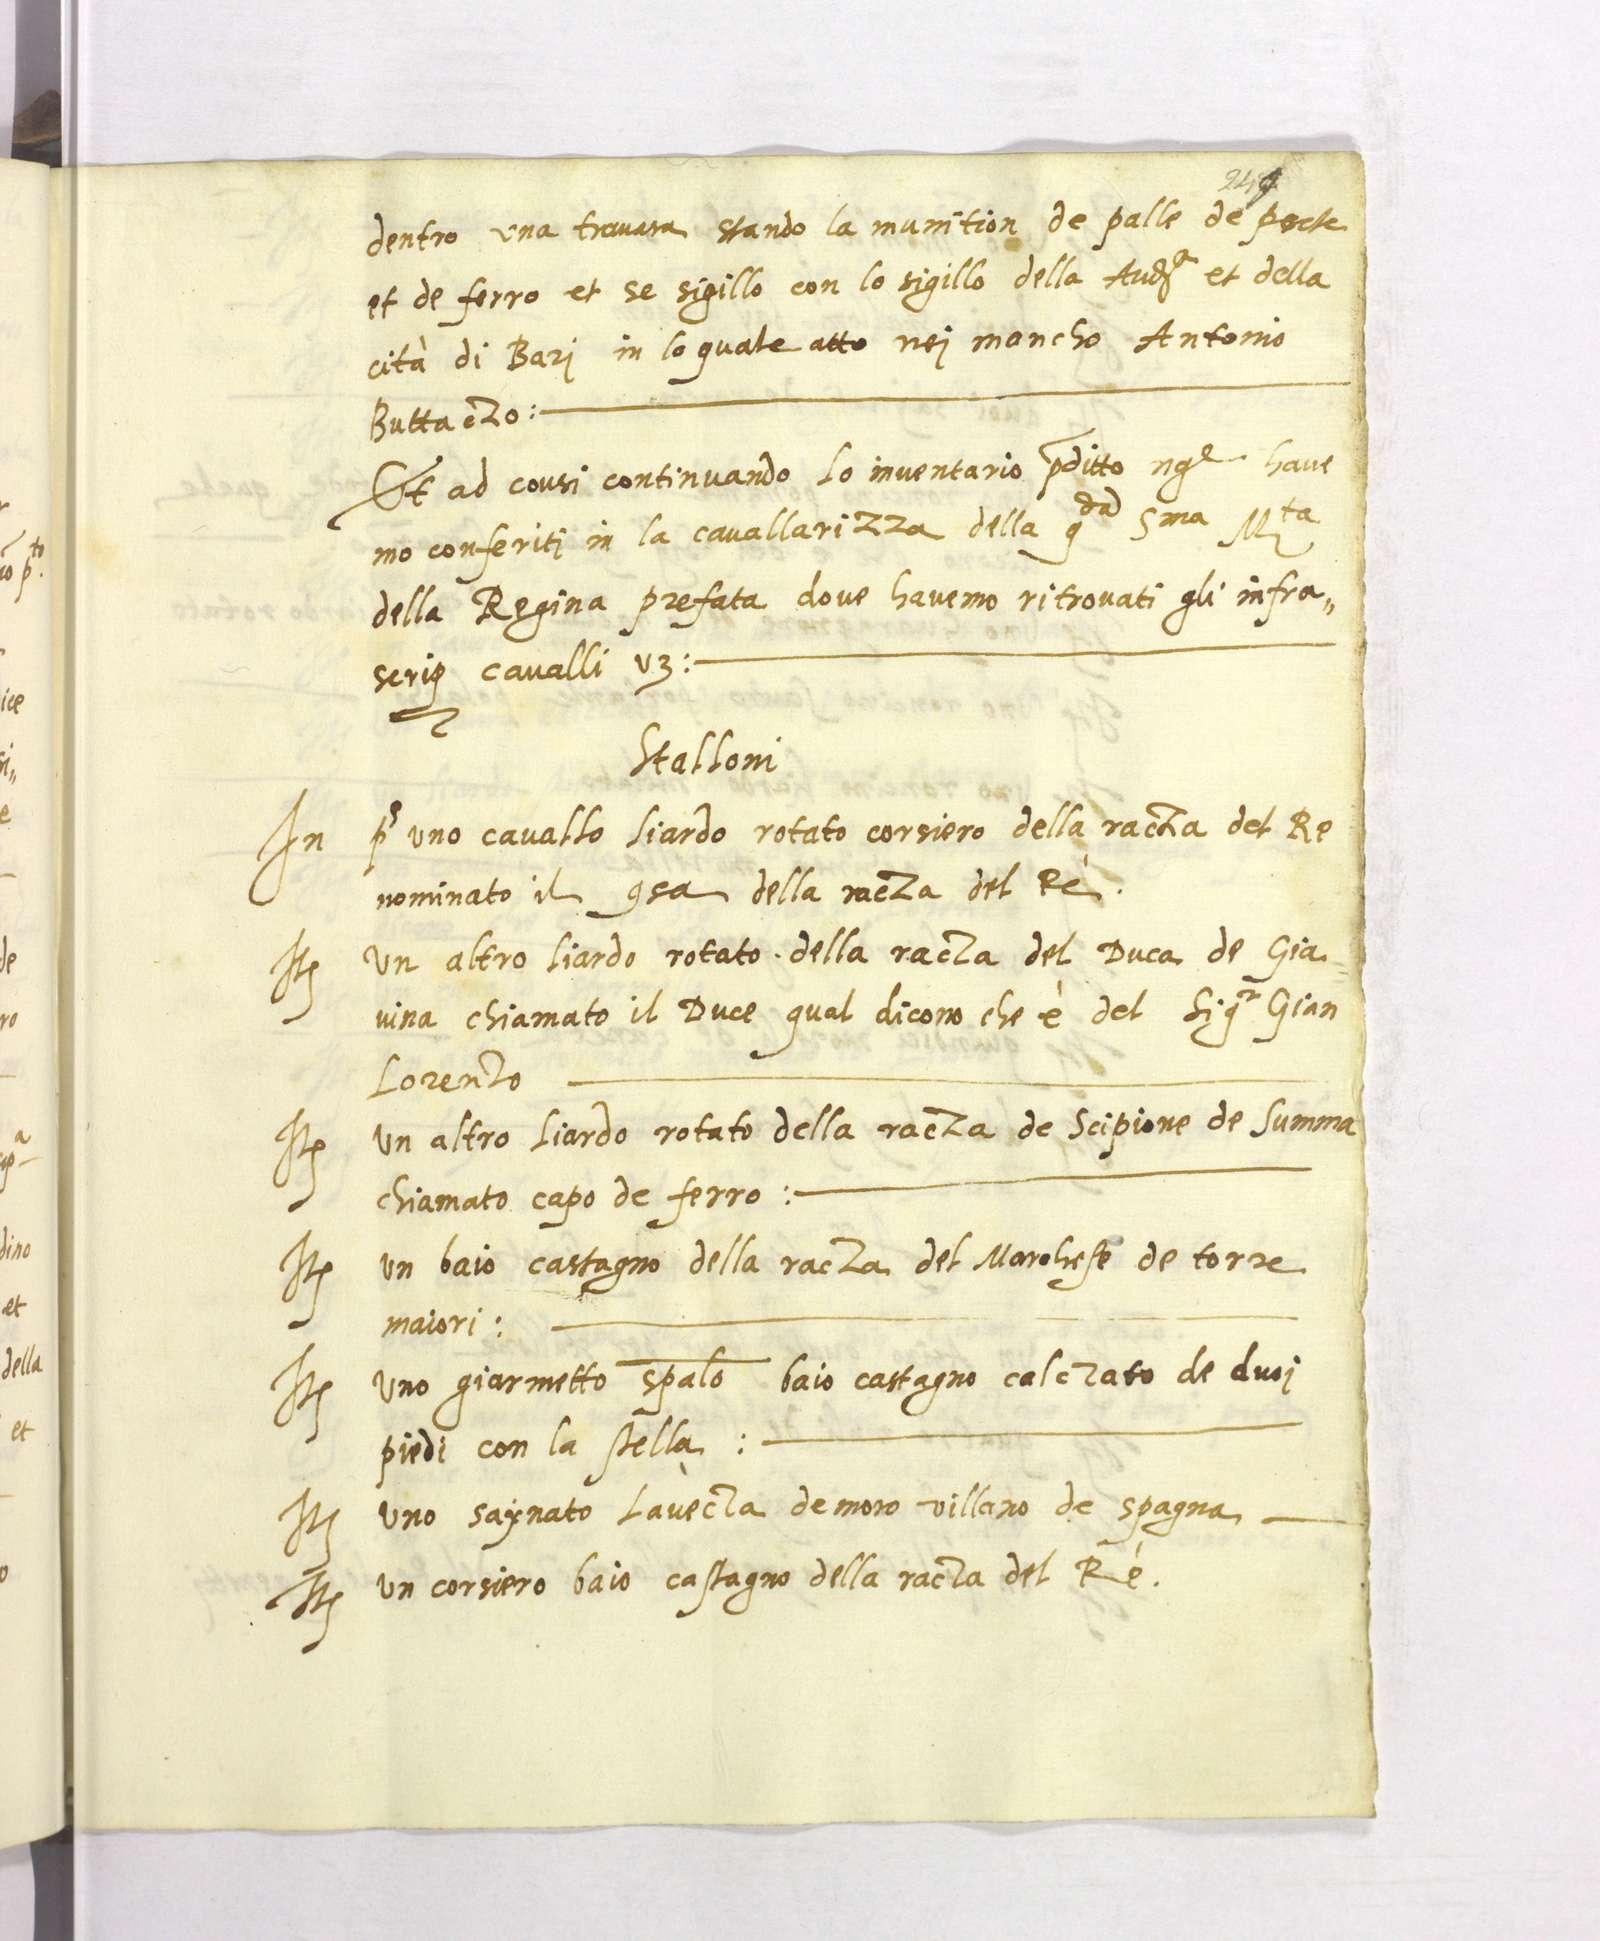 dentro una travasa stando la munition de palle de
et de ferro et se sigillo con lo sigillo della Aud.a et della
cità di Barj in lo quale atto nej mancho Antonio
Buttaczo:
Et ad cousi continuando lo inventario pditto have
mo conferitj in la cavallarizza della q.da Sma M.ta
della Regina prefata dove havemo ritrovati gli infra„
scrip cavalli vz:
Stalloni
In p.s uno cavallo liardo rotato corsiero della racza del Re
nominato il della racza del Rè.
Itē Un altro liardo rotato della racza del Duca de Gia=
vina chiamato il Duce qual dicono che è del Sig.r Gian
Lorenzo
Itē Un altro liardo rotato della racza de Scipione de Summa
chiamato capo de ferro:
Itē un baio castagno della racza del Marchese de torre
maiori:
Itē Uno giarmetto spalo baio castagno calczato de duoj
piedi con la stella:
Itē Uno saynato Lavècza de moro villano de spagna
Itē un corsiero baio castagno della racza del Rè.